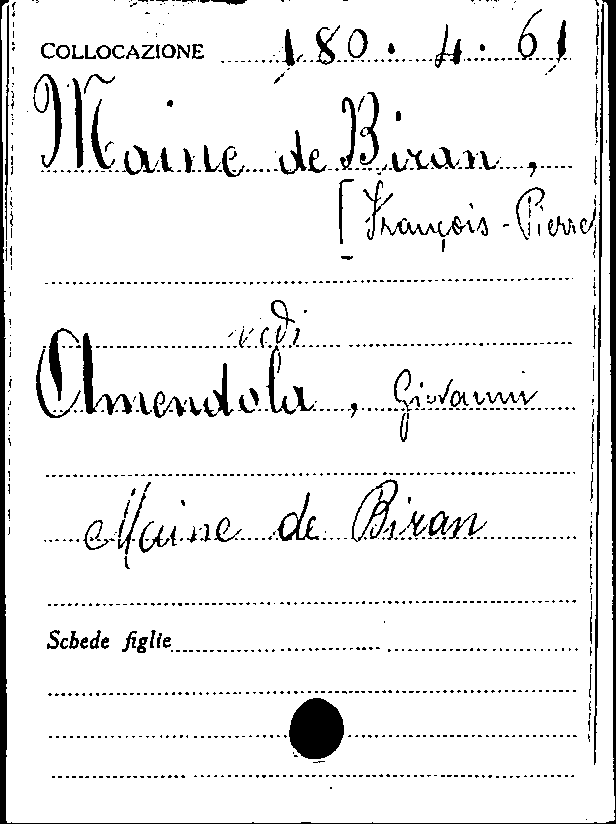 COLLOCAZIONE 180. 4. 61
Maine de Biran,
[François-Pierre
vedi
Amendola, Giovanni
Maine de Biran
Schede figlie